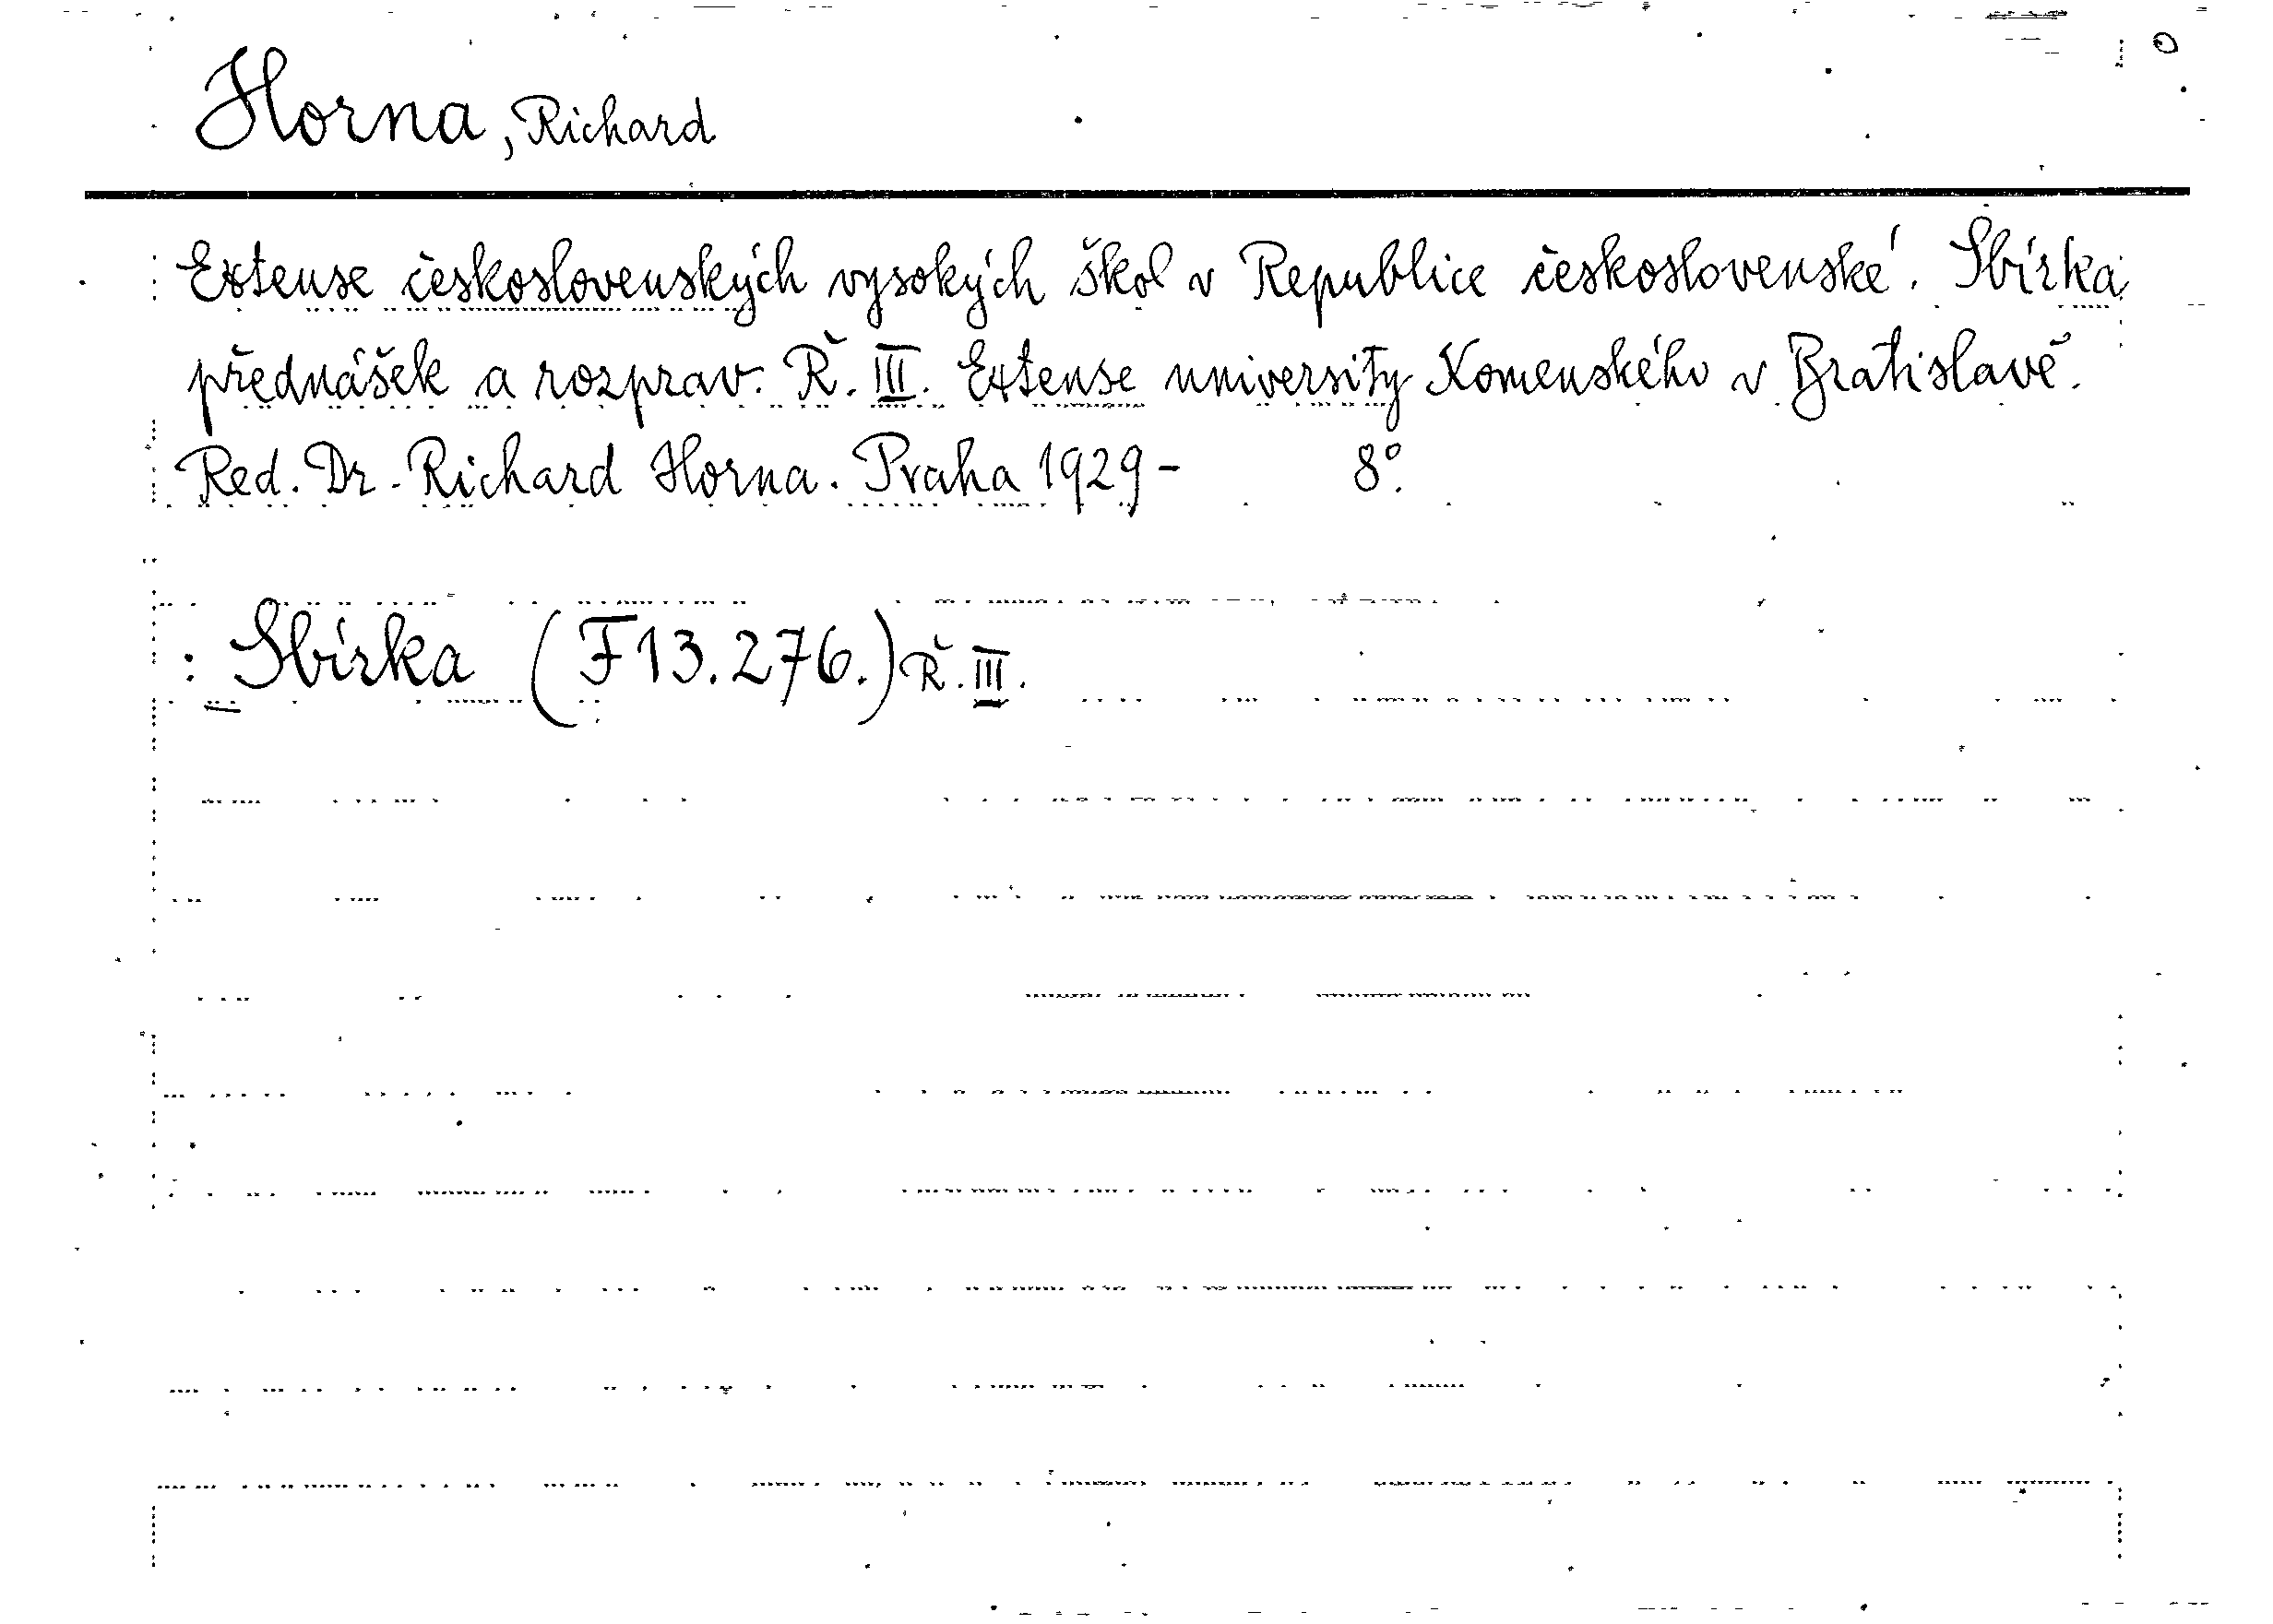 Horna, Richard
Extense československých vysokých škol v Republice československé. Sbírka
přednášek a rozprav. Ř. III. Extense university Komenského v Bratislavě.
Red. Dr. Richard Horna. Praha 1929- 8°.
: Sbírka (F13.276.) Ř. III.